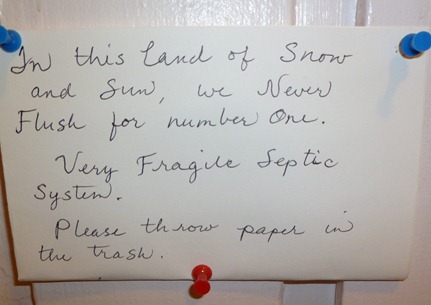 In this Land of Snow
and Sun, we Never
Flush for number One.
Very Fragile Septic
System.
Please throw paper in
the trash.